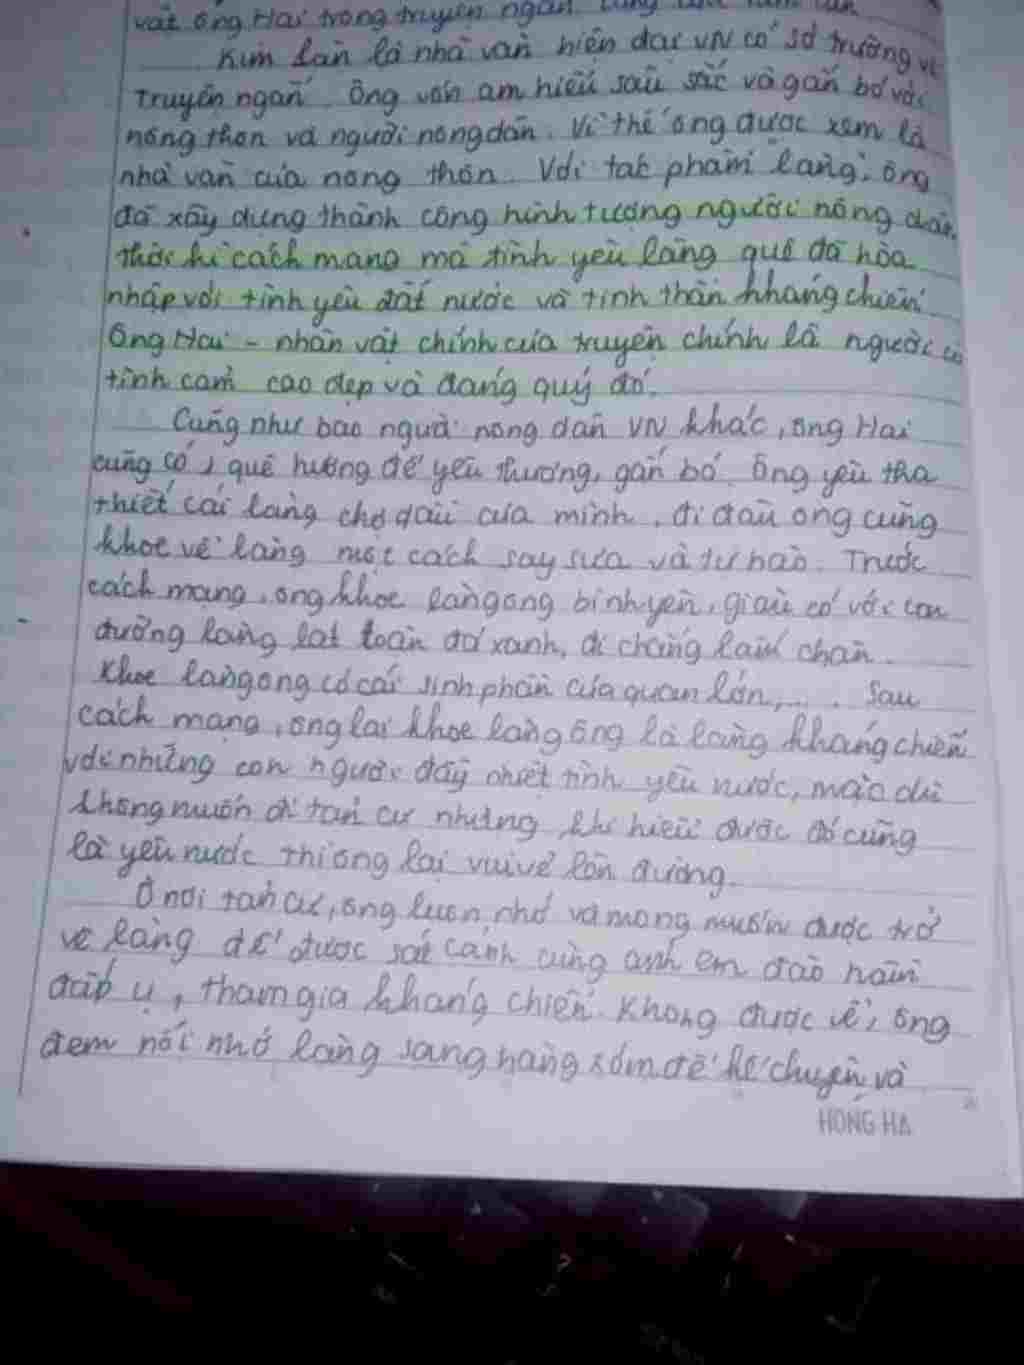 vật ông Hai trong truyện ngắn
Kim Lân là nhà văn hiện đại VN có sở trường về
truyện ngắn. Ông vốn am hiểu sâu sắc và gắn bó với
nông thôn và người nông dân. Vì thế ông được xem là
nhà văn của nông thôn. Với tác phẩm "Làng", ông
đã xây dựng thành công hình tượng người nông dân
thời kì cách mạng mà tình yêu làng quê đã hòa
nhập với tình yêu đất nước và tinh thần kháng chiến.
Ông Hai - nhân vật chính của truyện chính là người có
tình cảm cao đẹp và đáng quý đó.
Cũng như bao người nông dân VN khác, ông Hai
cũng có 1 quê hương để yêu thương, gắn bó. Ông yêu tha
thiết cái làng chợ dầu của mình, đi đâu ông cũng
khoe về làng một cách say sưa và tự hào. Trước
cách mạng, ông khoe làng ông bình yên, giàu có với con
đường làng lát toàn đá xanh, đi chẳng lấm chân.
Khoe làng ông có cái sinh phần của quan lớn,.... Sau
cách mạng, ông lại khoe làng ông là làng kháng chiến
với những con người đầy nhiệt tình yêu nước, mặc dù
không muốn đi tản cư nhưng khi hiểu được đó cũng
là yêu nước thì ông lại vui vẻ lên đường.
Ở nơi tản cư, ông luôn nhớ và mong muốn được trở
về làng để được sát cánh cùng anh em đào hầm
đắp ụ, tham gia kháng chiến. Không được về, ông
đem nỗi nhớ làng sang hàng xóm để kể chuyện và
HONG HA